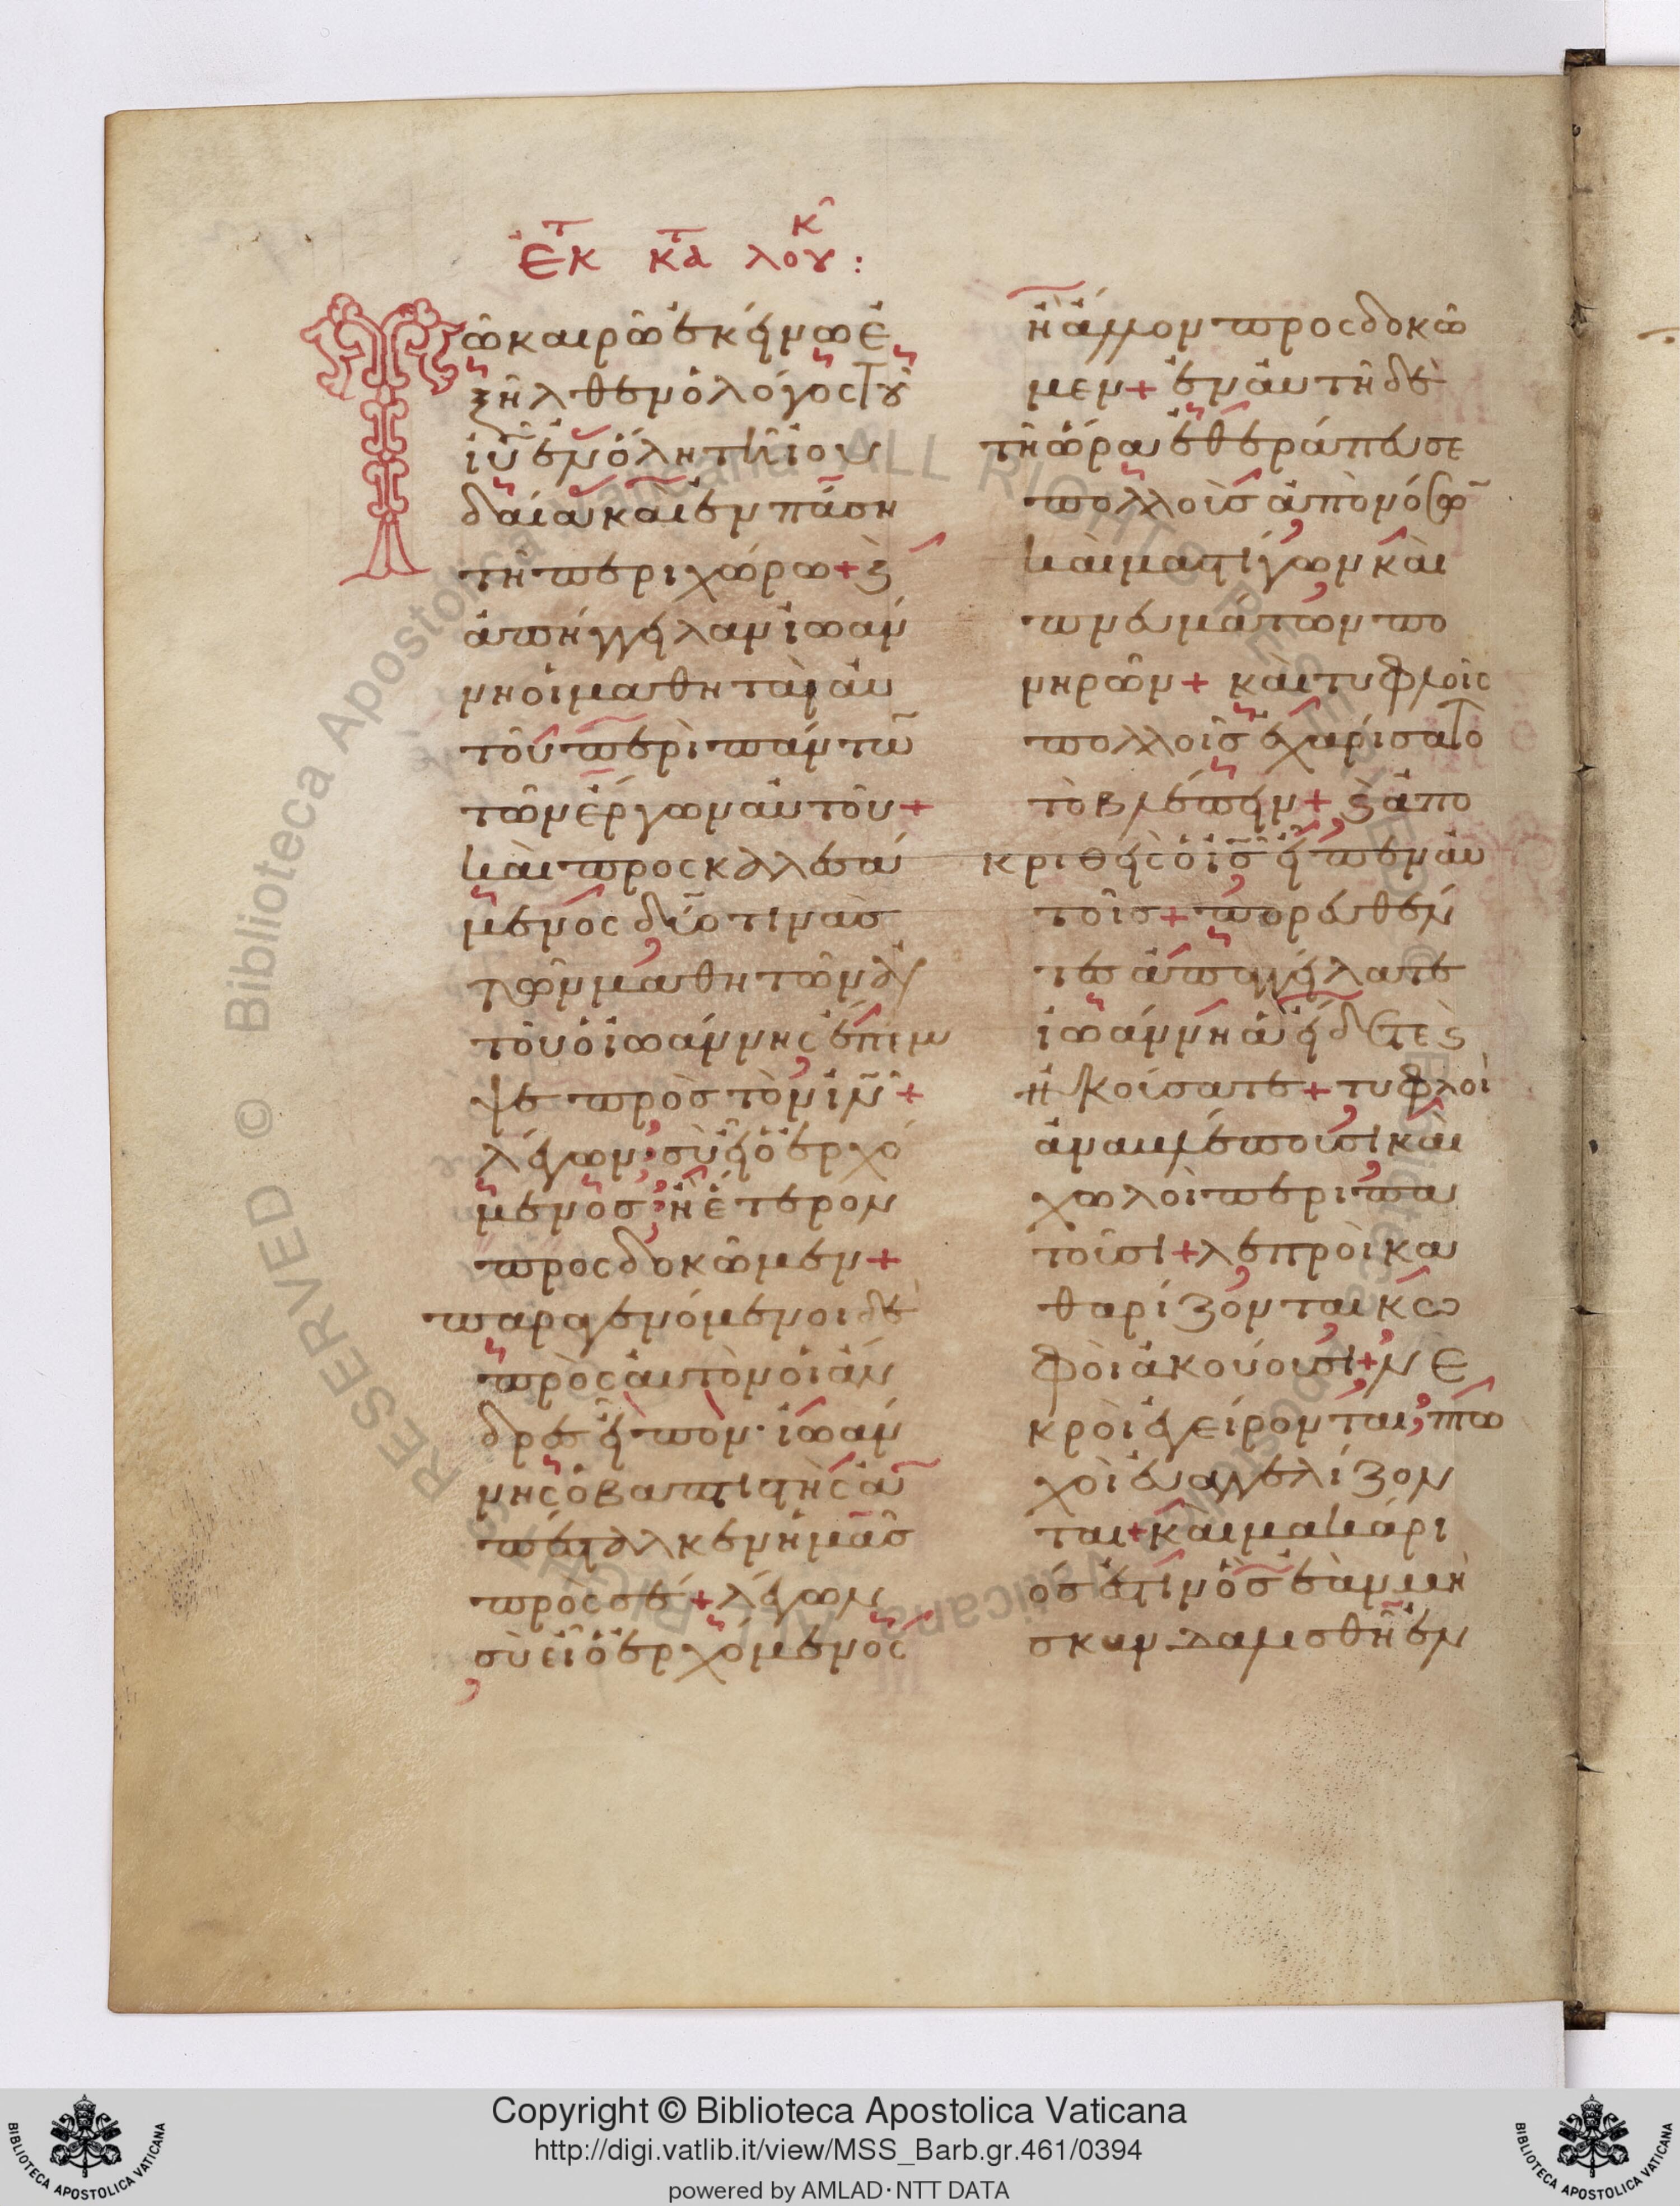 ἐκ τ κατ λουκ :
Τῶ καιρῶ ἐκείνω ἐ
ξῆλθεν ὁ λόγος τοῦ
ἰῦ ἐν ὅλη τῆ ἰου
δαία καὶ ἐν πάση
τῆ περιχώρω + ϗ
ἀπήγγειλαν ἰωάν
νη οἱ μαθηταὶ αὐ
τοῦ περὶ πάντω̃
τῶν ἔργων αὐτοῦ +
καὶ προσκαλεσά
μενος δύο τινὰς
τῶν μαθητῶν αὐ
τοῦ ὁ ἰωάννης ἔπεμ
ψε πρὸς τὸν ἰν̃ +
λέγων· σὺ εἶ ὁ ἐρχό
μενος; ἢ ἕτερον
προσδοκῶμεν +
παραγενόμενοι δὲ
πρὸς αὐτὸν οἱ ἄν
δρες εἶπον· ἰωάν
νης ὁ βαπτιστὴς ἀ
πέσταλκεν ἡμᾶς
πρός σε + λέγων
σὺ εἶ ὁ ἐρχόμενος
ἢ ἄλλον προσδοκῶ
μεν + ἐν αὐτῆ δὲ
τῆ ὥρα ἐθεράπευσε
πολλοὺς ἀπὸ νόσω̃
καὶ μαστίγων καὶ
πνευμάτων πο
νηρῶν + καὶ τυφλοῖς
πολλοῖς ἐχαρίσατο
τὸ βλέπειν + ϗ ἀπο
κριθεὶς ὁ ις̃ εἶπεν αὐ
τοῖς + πορευθέν
τες ἀπαγγείλατε
ἰωάννη ἃ εἴδετε ϗ
ἠκούσατε + τυφλοὶ
ἀναβλέπουσι καὶ
χωλοὶ περιπα
τοῦσι + λεπροὶ κα
θαρίζονται κω
φοὶ ἀκούουσι + νε
κροὶ ἐγείρονται, πτω
χοὶ εὐαγγελίζον
ται + καὶ μακάρι
ός ἐστιν ὃς ἐὰν μὴ
σκανδαλισθῆ ἐν
Copyright © Biblioteca Apostolica Vaticana
http://digi.vatlib.it/view/MSS_Barb.gr.461/0394
powered by AMLAD·NTT DATA